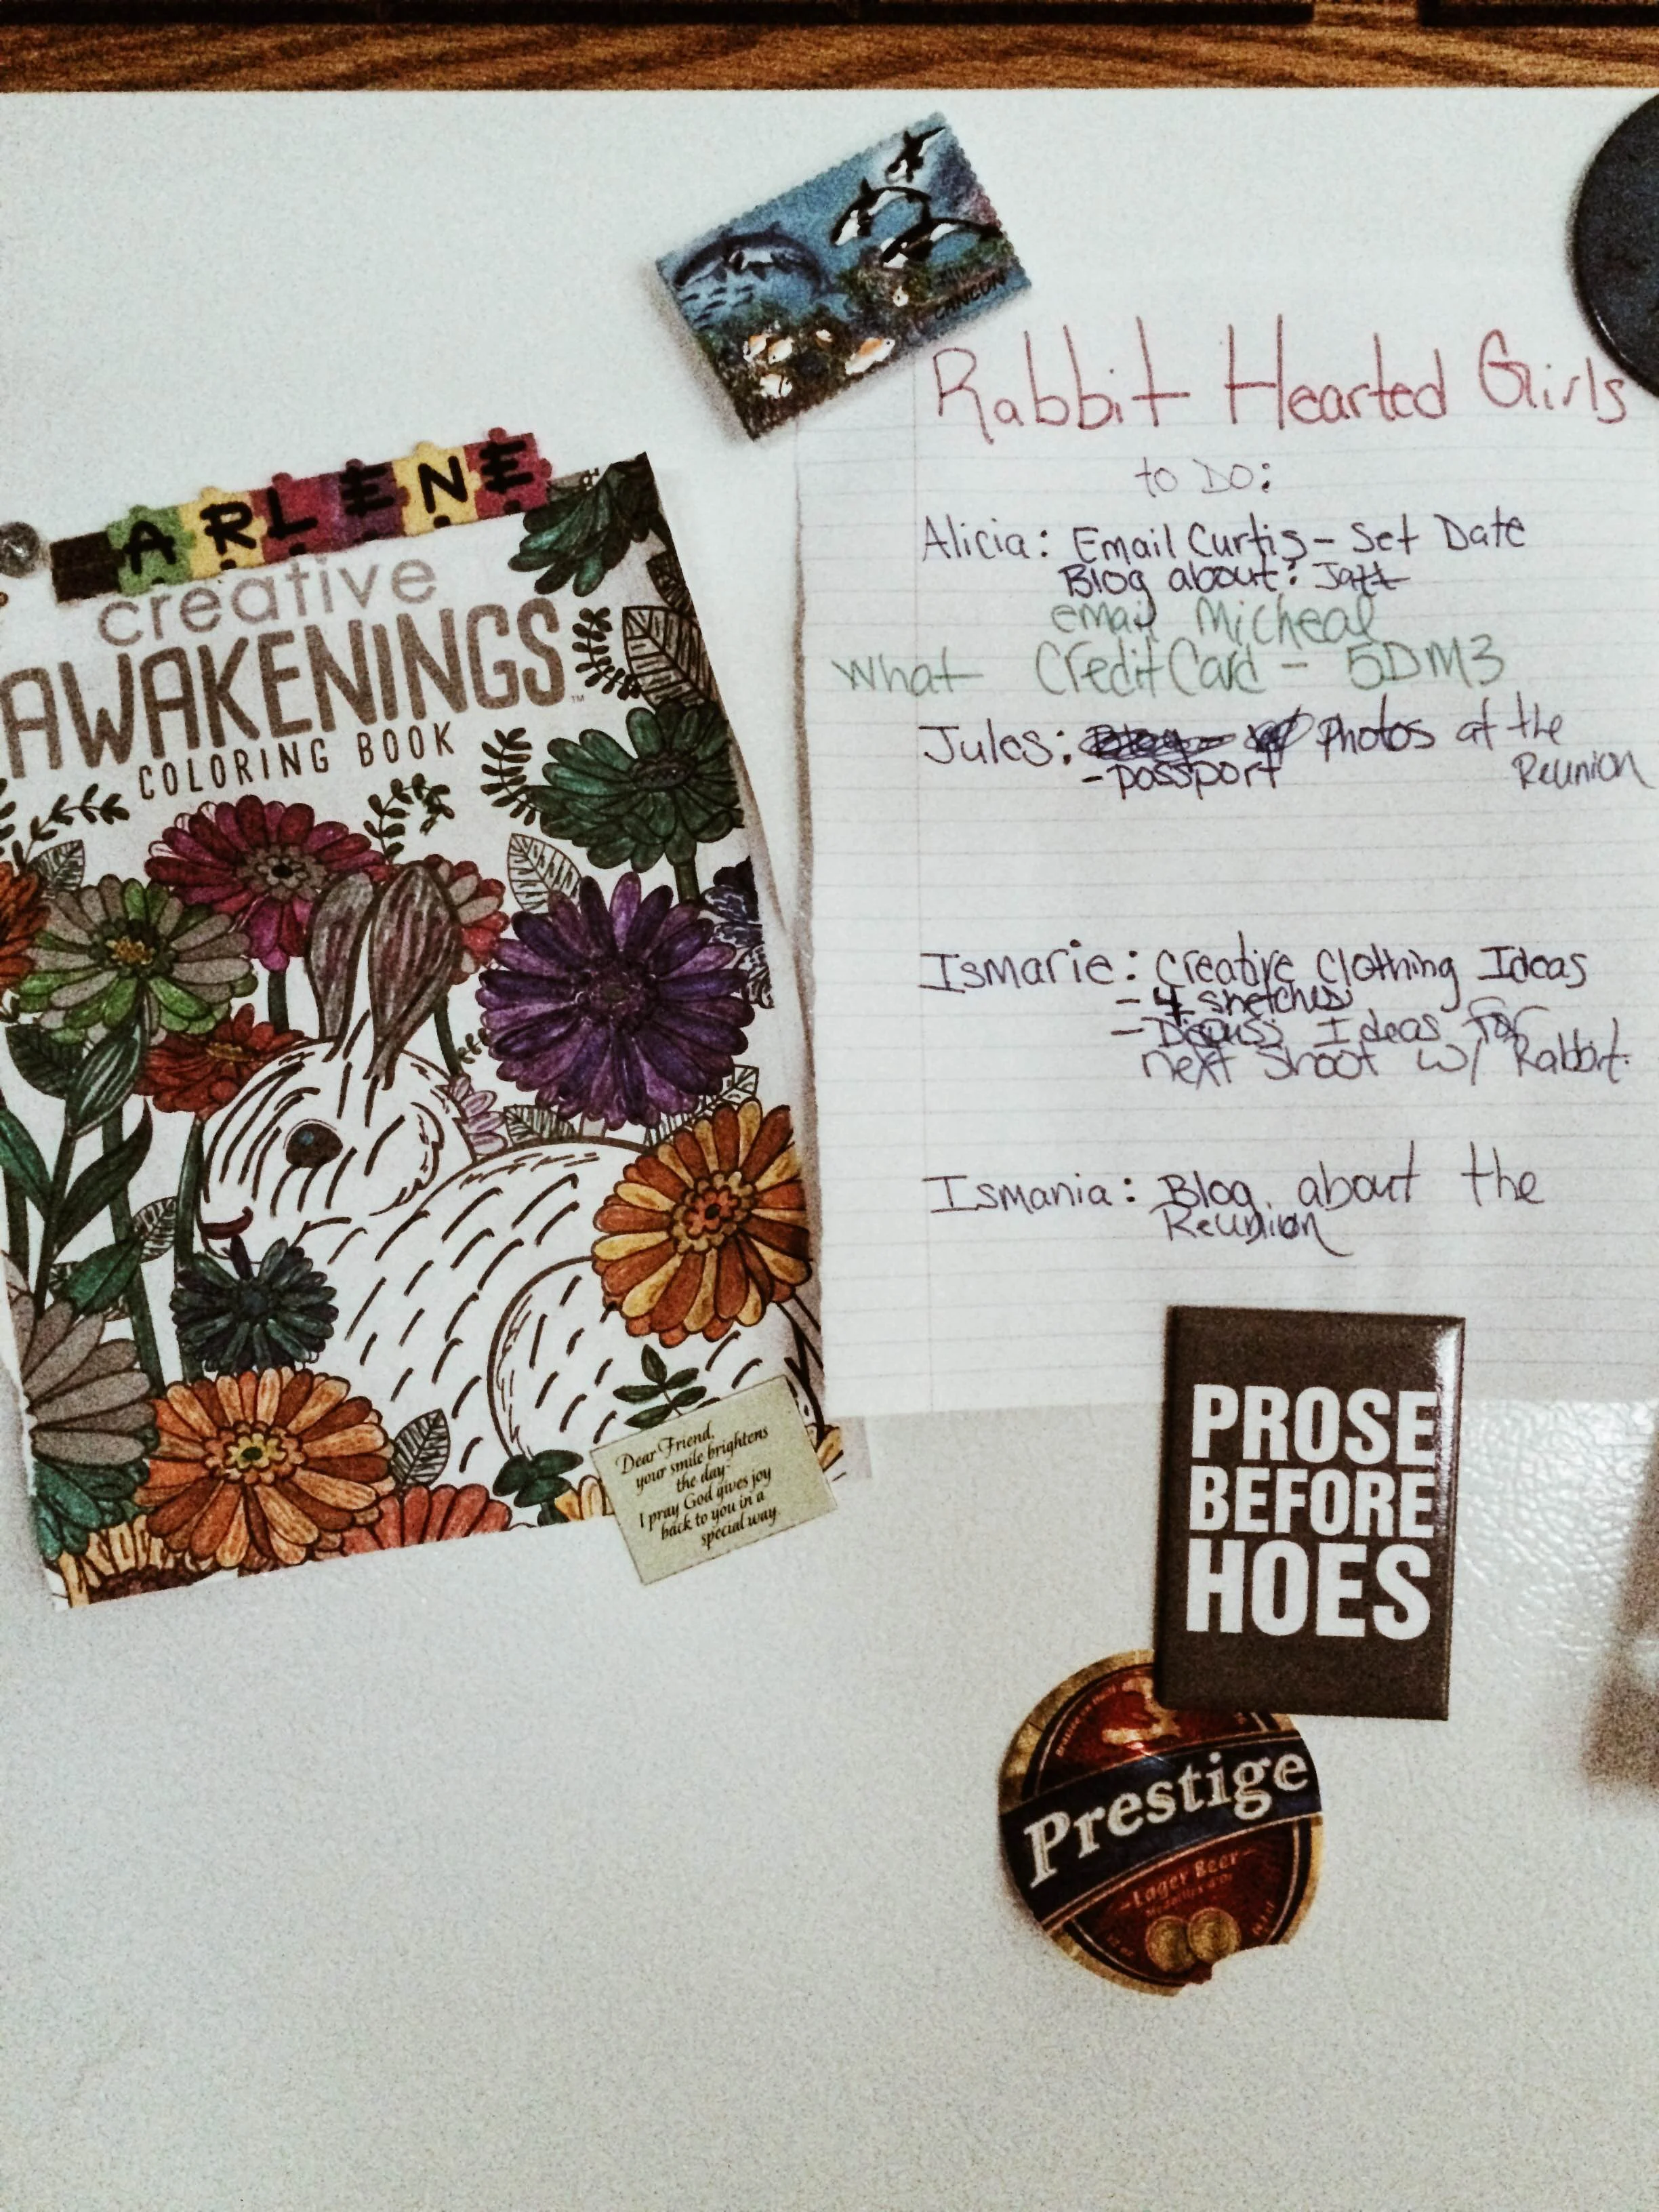 CANCUN
ARLENE
creative
AWAKENINGS™
COLORING BOOK
Dear Friend,
your smile brightens
the day-
I pray God gives joy
back to you in a
special way.
Rabbit Hearted Girls
to Do:
Alicia: Email Curtis - Set Date
Blog about:
email Micheal
what Credit Card - 5DM3
Jules: Photos at the
Reunion
- passport
Ismarie: Creative Clothing Ideas
- 4 sketches
- Discuss Ideas for
next shoot w/ Rabbit.
Ismania: Blog about the
Reunion
PROSE
BEFORE
HOES
Prestige
Lager Beer